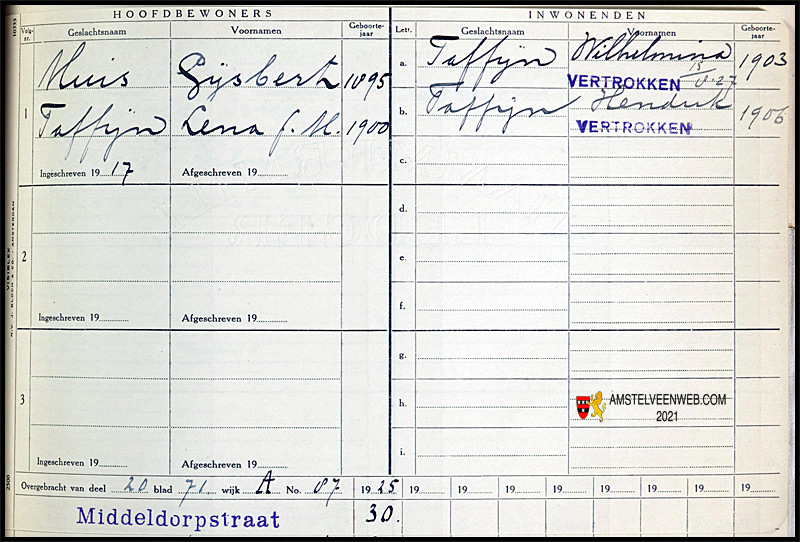 HOOFDBEWONERS
INWONENDEN
Volg-nr.
Geslachtsnaam
Voornamen
Geboorte-jaar
Lett.
Geslachtsnaam
Voornamen
Geboorte-jaar
1
Muis Gijsbert 1895
Taffijn Lena J. M. 1900
Ingeschreven 1917 Afgeschreven 19
a. Taffijn Wilhelmina 1903
VERTROKKEN 15/8.27
b. Taffijn Hendrik 1906
VERTROKKEN
c.
2
Ingeschreven 19 Afgeschreven 19
d.
e.
f.
3
Ingeschreven 19 Afgeschreven 19
g.
h.
i.
AMSTELVEENWEB.COM
2021
Overgebracht van deel 20 blad 71. wijk A No. 87 1925 19 19 19 19 19 19 19 19
Middeldorpstraat 30.
10333
2500